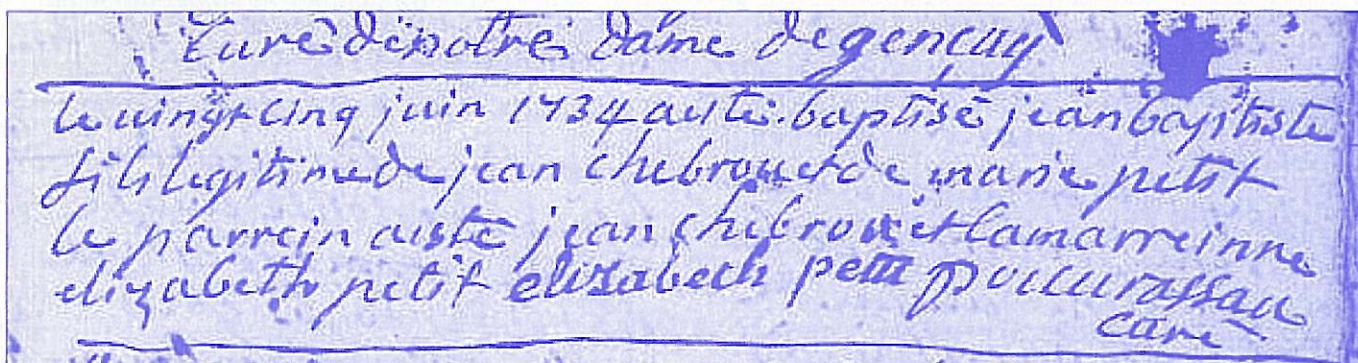 Curé dénotre dame degençay
le uingt cinq juin 1734 aesté baptisé jean baptiste
fils legitime de jean chebrou et de marie petit
le parrein aesté jean chebrou et lamarreinne
elizabeth petit elisabeth petit
curé